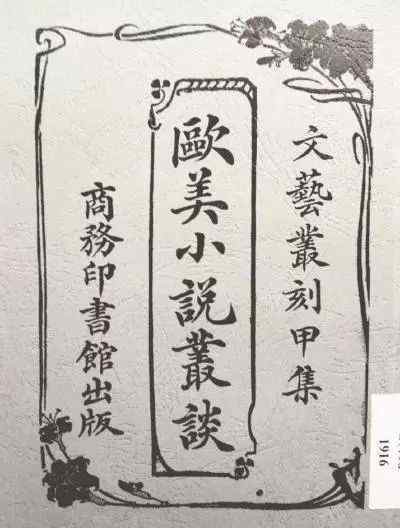 文藝叢刻甲集
歐美小說叢談
商務印書館出版
1916